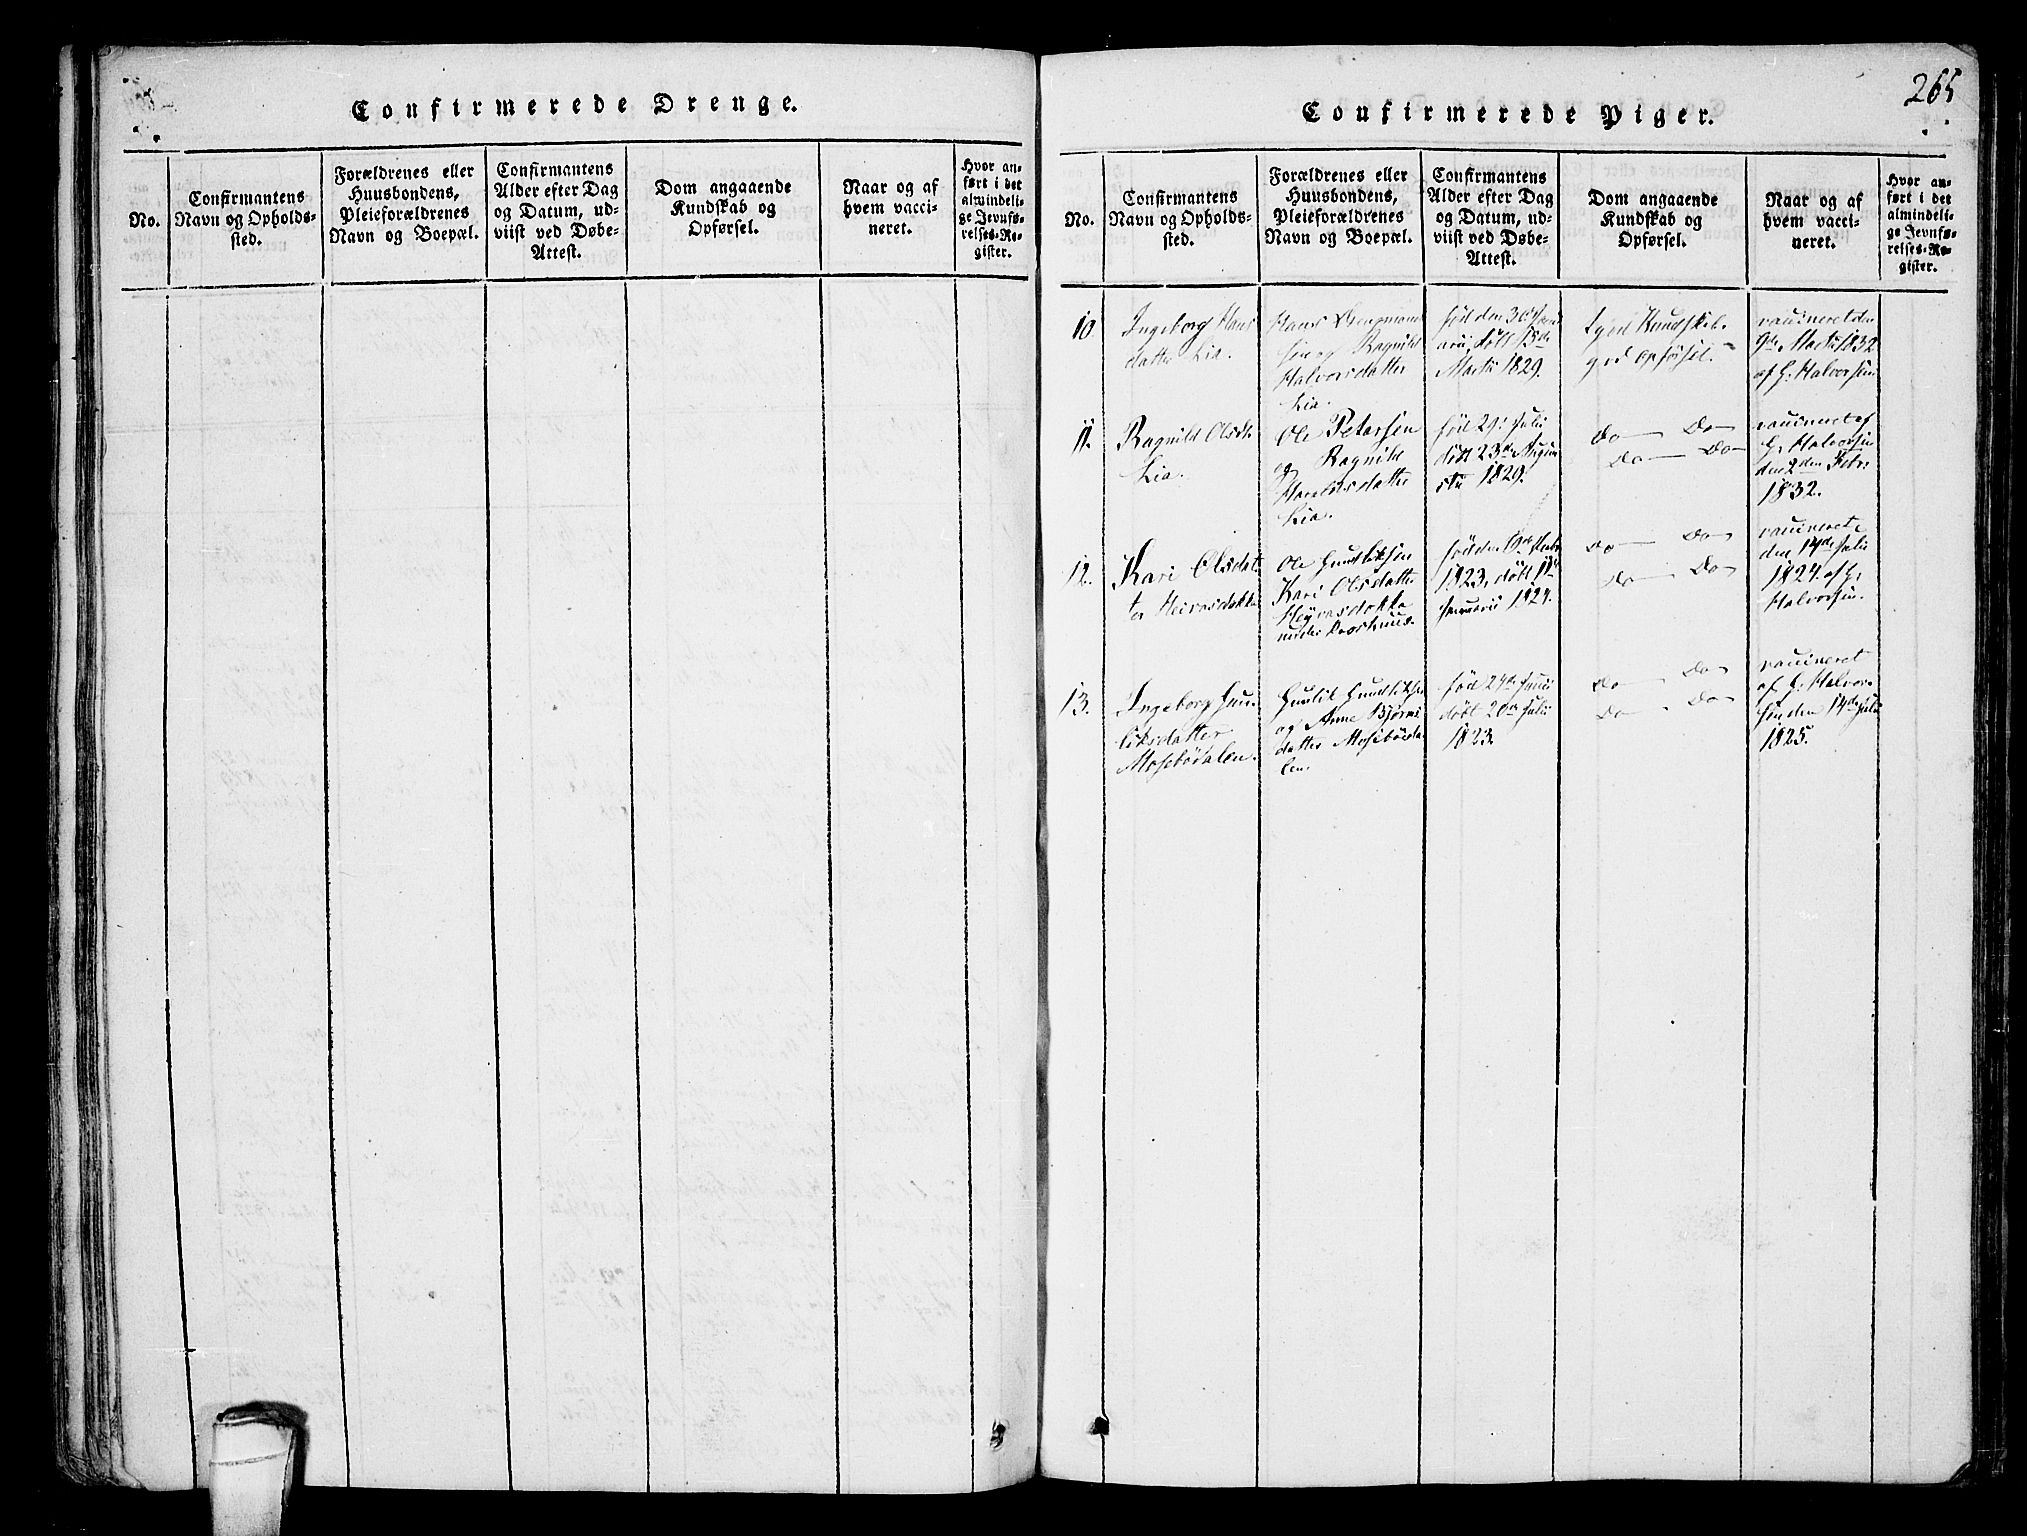 Confirmerede Drenge.
No.
Confirmantens
Navn og Opholds-
sted.
Forældrenes eller
Huusbondens,
Pleieforældrenes
Navn og Boepæl.
Confirmantens
Alder efter Dag
og Datum, ud-
viist ved Døbe-
Attest.
Dom angaaende
Kundskab og
Opførsel.
Naar og af
hvem vacci-
neret.
Hvor an-
ført i det
almindeli-
ge Jevnfø-
relses-Re-
gister.
265
Confirmerede Piger.
No.
Confirmantens
Navn og Opholds-
sted.
Forældrenes eller
Huusbondens,
Pleieforældrenes
Navn og Boepæl.
Confirmantens
Alder efter Dag
og Datum, ud-
viist ved Døbe-
Attest.
Dom angaaende
Kundskab og
Opførsel.
Naar og af
hvem vacci-
neret.
Hvor an-
ført i det
almindeli-
ge Jevnfø-
relses-Re-
gister.
10.
Ingeborg Hans
datter Lia.
Hans
sen og Ragnild
Halvorsdatter
Lia.
født den 30
døbt 15de
Martii 1829.
god Kundskab.
god opførsel.
vaccineret den
9de Martii 1832
af G: Halvorsen
11.
Ragnild Olsdtr
Lia.
Ole Petersen
og Ragnild
Haraldsdatter
Lia.
født 29: Julii
døbt 23de Augu
sti 1829.
Do Do
Do Do
vaccineret af
G: Halvorsen
den 2den Febr:
1832.
12.
Kari Olsdat
ter Heivasdokka
Ole Gundliksen
Kari Olsdatter
Heyvasdokka
under Raashuus.
født den
1823, døbt 11te
Januarii 1824.
Do Do
Do Do
vaccineret
den 14de Julii
1824. af G:
Halvorsen.
13.
Ingeborg Gun
liksdatter
Mosebødalen.
Gunlik Gundliksen
og Anne Bjørns
datter Mosebøda
len.
født 24de Junii
døbt 20de Julii
1823.
Do Do
Do Do
vaccineret
af G: Halvor
sen den 14de Julii
1825.